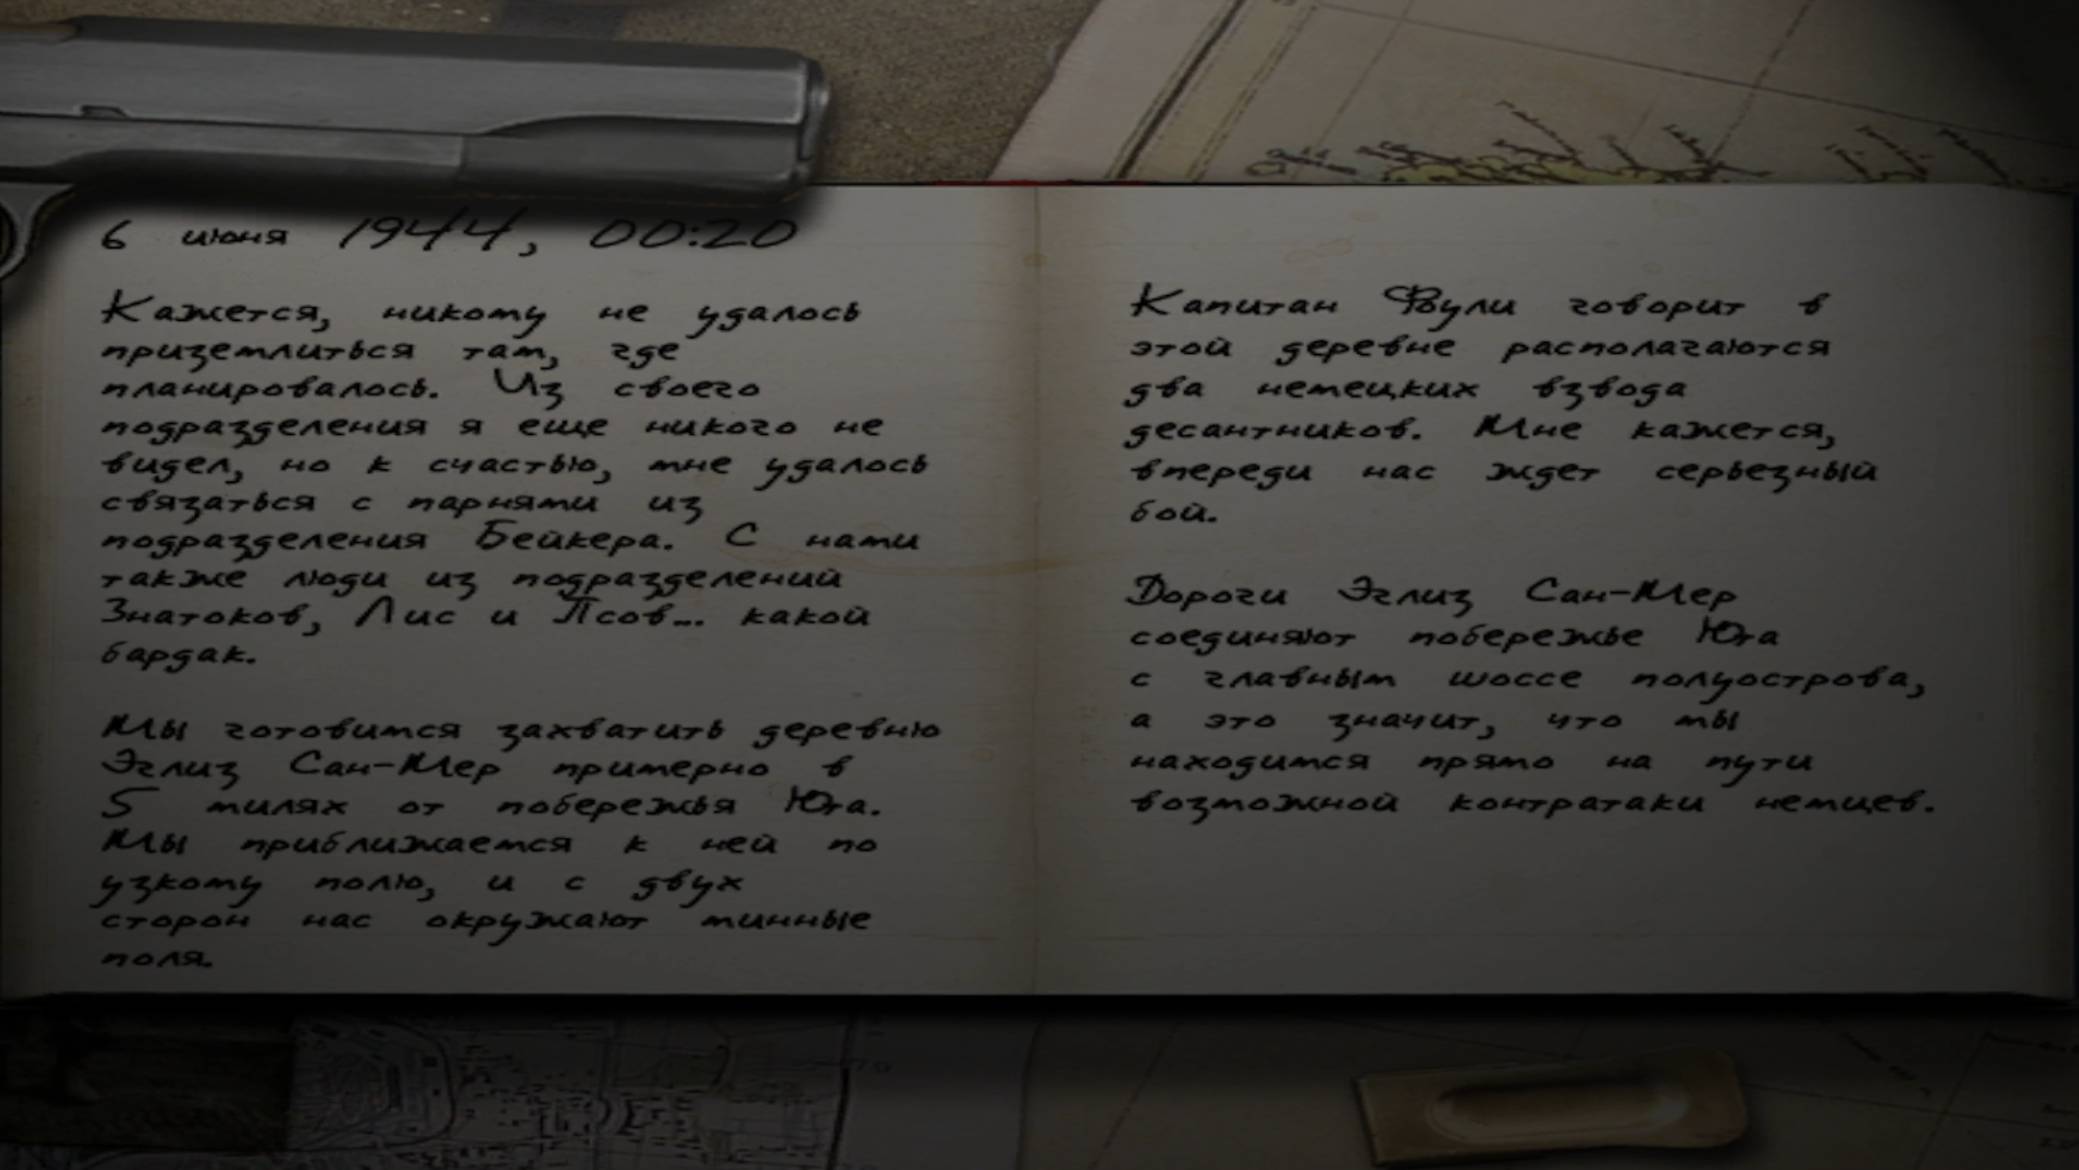 6 июня 1944, 00:20
Кажется, никому не удалось
приземлиться там, где
планировалось. Из своего
подразделения я еще никого не
видел, но к счастью, мне удалось
связаться с парнями из
подразделения Бейкера. С нами
также люди из подразделений
Знатоков, Лис и Псов... какой
бардак.
Мы готовимся захватить деревню
Эглиз Сан-Мер примерно в
5 милях от побережья Юта.
Мы приближаемся к ней по
узкому полю, и с двух
сторон нас окружают минные
поля.
Капитан Фоули говорит в
этой деревне располагаются
два немецких взвода
десантников. Мне кажется,
впереди нас ждет серьезный
бой.
Дороги Эглиз Сан-Мер
соединяют побережье Юта
с главным шоссе полуострова,
а это значит, что мы
находимся прямо на пути
возможной контратаки немцев.